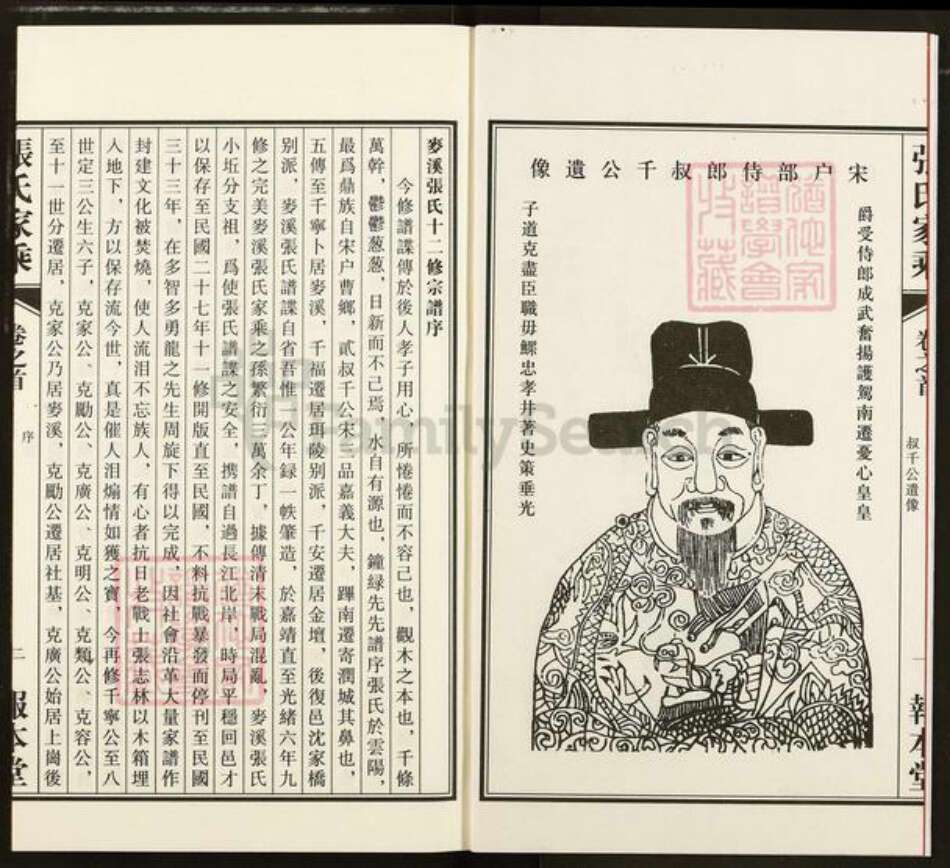 宋户部侍郎叔千公遺像
爵受侍郎成武奮揚護駕南遷憂心皇皇
子道克盡臣職毋鰥忠孝井著史策垂光
張氏家乘
卷之首
叔千公遺像
一
報本堂
麥溪張氏十二修宗譜序
今修譜諜傳於後人孝子用心、所惓惓而不容己也、觀木之本也、千條
萬幹、鬱鬱葱葱、日新而不己焉、水自有源也、鐘緑先先譜序張氏於雲陽、
最爲鼎族自宋户曹鄉、貳叔千公宋三品嘉義大夫、蹕南遷寄潤城其鼻也、
五傳至千寧卜居麥溪、千福遷居珥陵别派、千安遷居金壇、後復邑沈家橋
别派、麥溪張氏譜諜自省吾惟一公年録一帙肇造、於嘉靖直至光緒六年九
修之完美麥溪張氏家乘之孫繁衍三萬余丁、據傳清末戰局混亂、麥溪張氏
小坵分支祖、爲使張氏譜諜之安全、携譜自過長江北岸、時局平穩回邑才
以保存至民國二十七年十一修開版直至民國、不料抗戰暴發而停刊至民國
三十三年、在多智多勇龍之先生周旋下得以完成、因社會沿革大量家譜作
封建文化被焚燒、使人流泪不忘族人、有心者抗日老戰士張志林以木箱埋
入地下、方以保存流今世、真是催人泪煽情如獲之寶、今再修千寧公至八
世定三公生六子、克家公、克勵公、克廣公、克明公、克類公、克容公、
至十一世分遷居、克家公乃居麥溪、克勵公遷居社基、克廣公始居上崗後
張氏家乘
卷之首
序
二
報本堂
FamilySearch